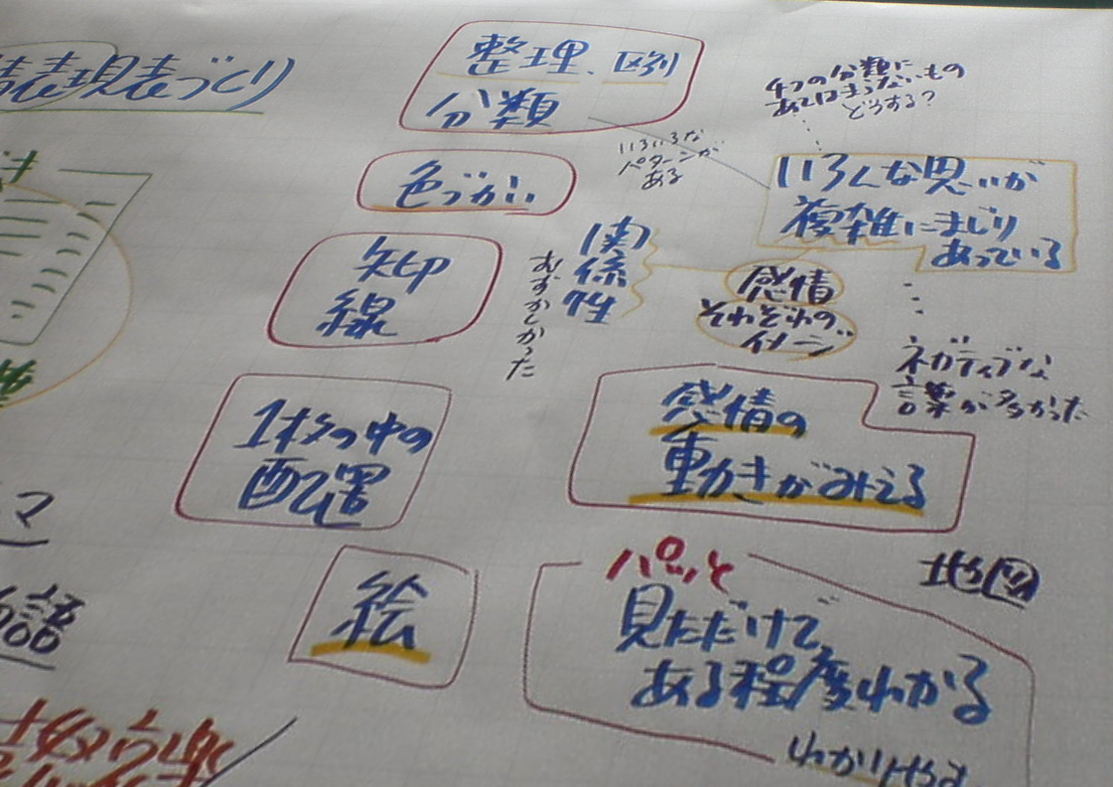 表現表づくり
整理、区別
分類
4つの分類に
あてはまらないもの
どうする?
いろいろな
パターンが
ある
色づかい
いろんな思いが
複雑にまじり
あっている
関係性
むずかしかった
矢印
線
感情
それぞれの
イメージ
ネガティブな
言葉が多かった
1枚の中の
配置
感情の
動きがみえる
絵
地図
パッと
見ただけで
ある程度わかる
わかりやすい
マ
語